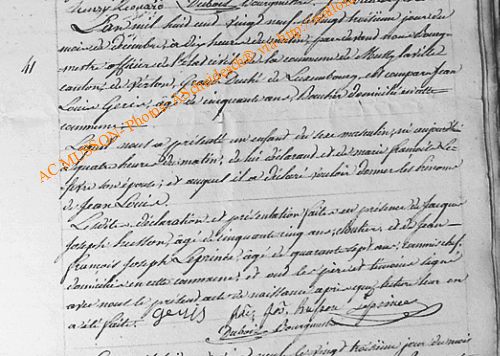 henry Leonard Dubois Bourguemestre
L'an mil huit cent vingt neuf, le vingt troisième jour du
mois de décembre, à dix heures du matin, par devant nous Bourg-
mestre officier de l'état civil de la commune de Mussy la ville
canton de Virton, Grand Duché de Luxembourg, est comparu Jean
Louis Geris, agé de cinquante ans, domicilié en cette
commune
41
Lequel nous a présenté un enfant du sexe masculin, né aujourd'hui
à quatre heures du matin, de lui déclarant et de marie françoise
son épouse, et auquel il a déclaré vouloir donner les prénoms
de Jean Louis
Lesdites déclaration et présentation faites en présence de Jacques
Joseph husson, agé de cinquante cinq ans, et de jean
françois Joseph Leprince, agé de quarante sept ans,
domiciliés en cette commune, et ont les père et témoins signé
avec nous le présent acte de naissance après que lecture leur en
a été faite. geris husson Leprince
Dubois Bourguemestre
vingt troisième jour du mois
AC MUSSON - Photos Archi